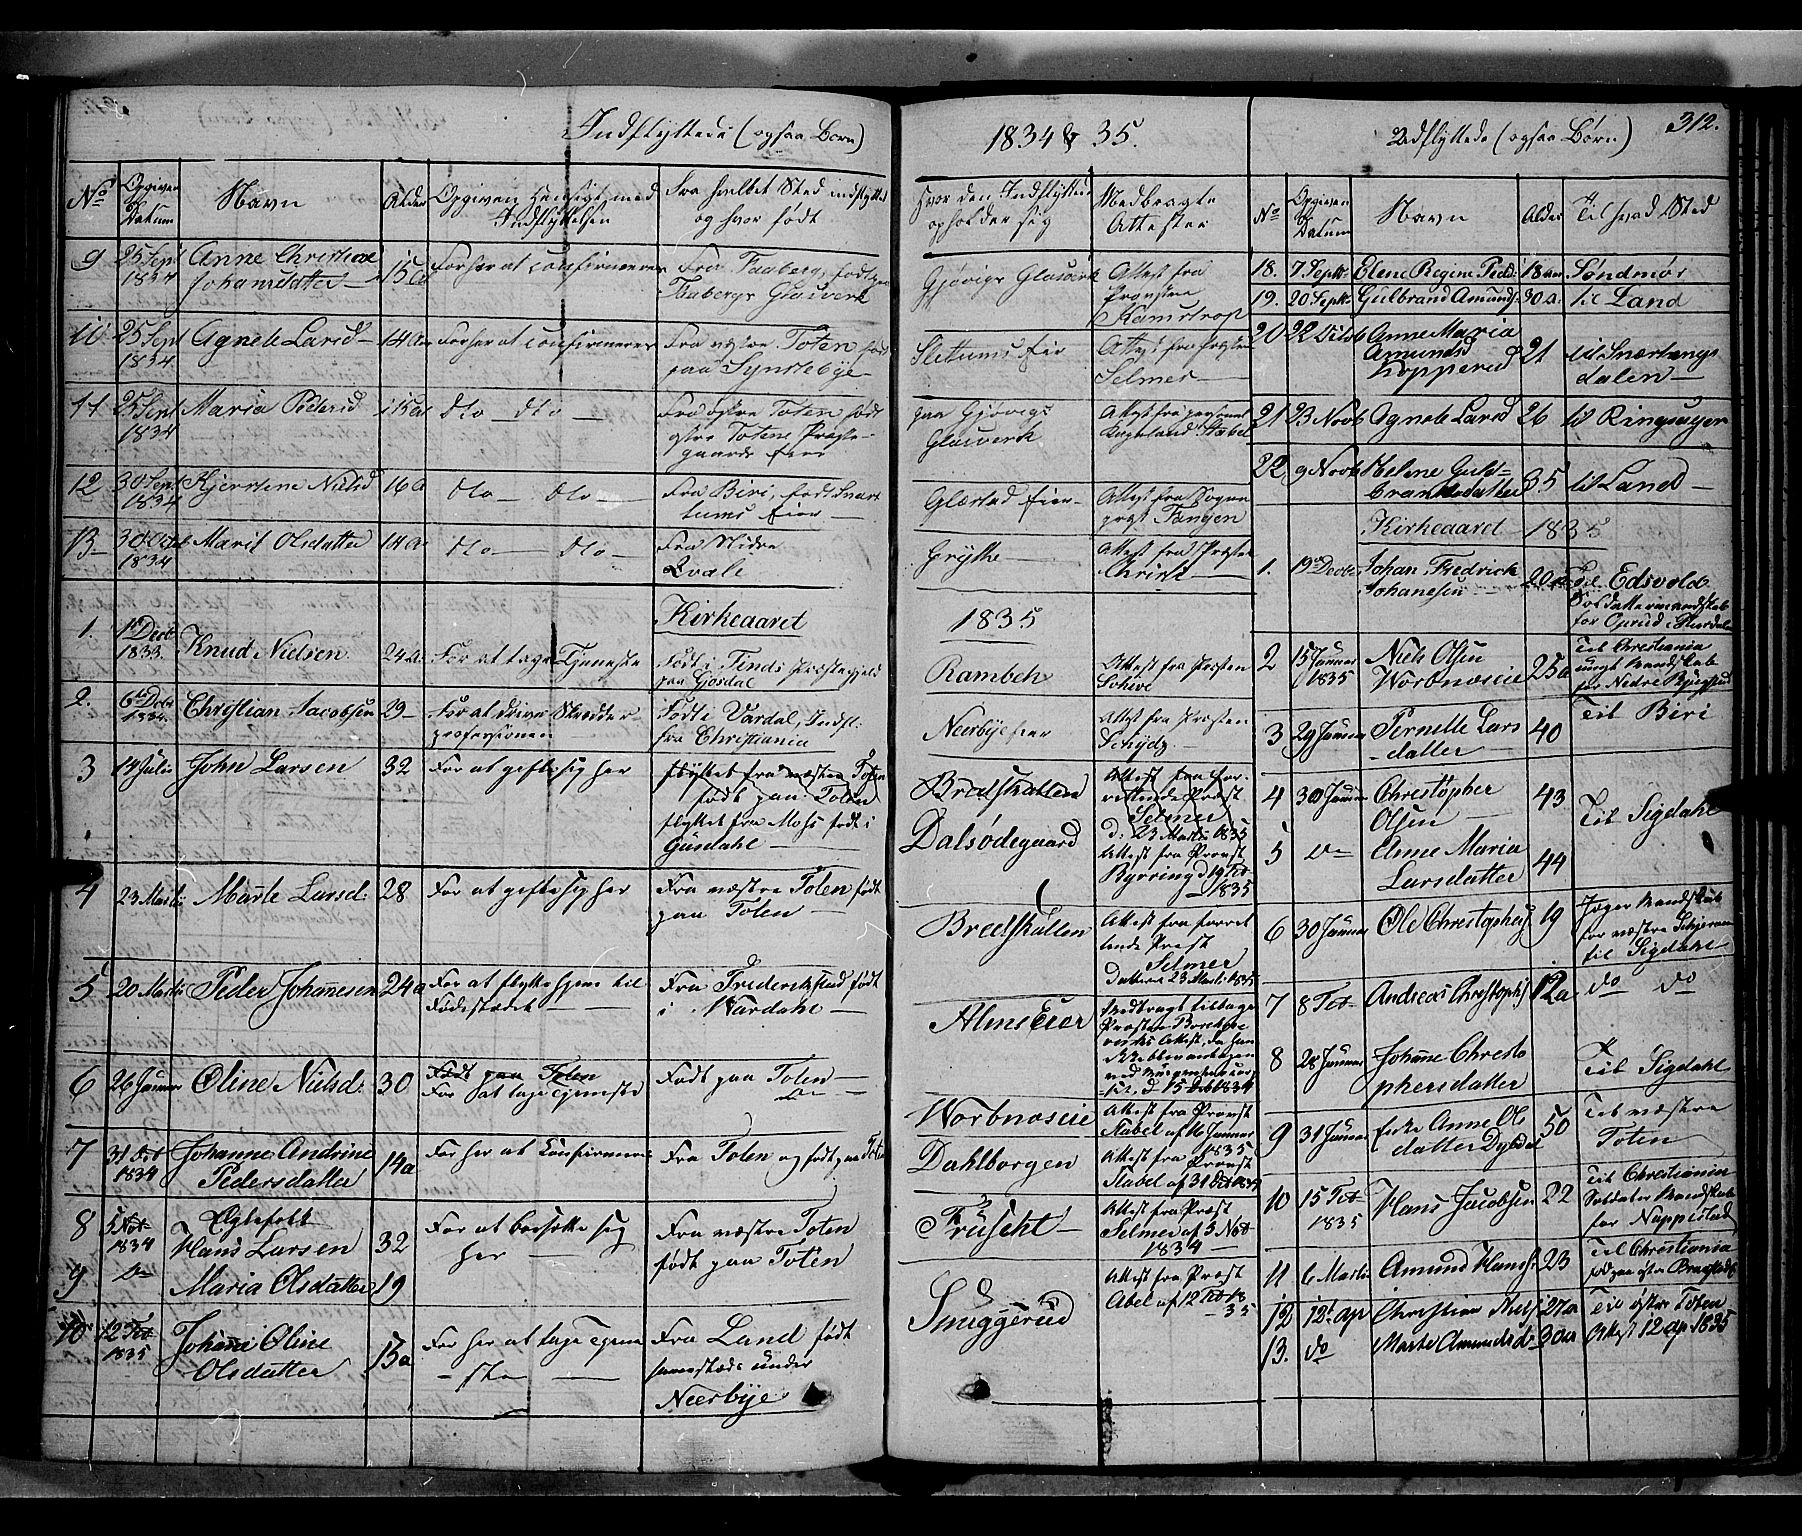 Indflyttede (ogsaa Børn)
1834 & 35.
Udflyttede (ogsaa Børn)
312.
No
Opgiven Datum
Navn
Alder
Opgiven Hensigt med Indflyttelsen
Fra hvilket Sted indflyttet og hvor født
Hvor den Indflyttede opholder sig
Medbragte Attester
9 25 Sept 1834 Anne Christine Johansdatter 15 a For her at confirmeres Fra Faaberg, født paa Faabergs Glasverk
Gjøvigs Glasverk Attest fra Provsten Kamstrop
10 25 Sept 1834 Agnete Larsd 14 a For her at confirmeres Fra vestre Toten født paa Synstebye
Slettums Eier Attest fra Præsten Selmer
11 25 Sept 1834 Maria Pedersd 15 a dto dto Fra østre Toten født østre Totens Præstegaards Eier
paa Gjøvigs Glasverk Attest fra personel Kapelland Stabel
12 30 Sept 1834 Kjerstene Nielsd 16 a dto dto Fra Biri, født Svartums Eier
Glæstad Eier Attest fra Sogneprest Fangen
13 30 Octob 1834 Marit Olsdatter 14 a dto dto Fra Nidre Land
Grythe Attest fra Præsten
Kirkeaaret 1835
1. 1 Decb 1833 Knud Nielsen 24 a For at tage Tjeneste Født i Tinds Præstegjeld paa Gøsdal
Rambek Attest fra Præsten
2. 6 Decb 1834 Christian Jacobsen 29 For at drive Skrædder professionen Født i Vardal, Indfl. fra Christiania
Neerbye Eier Attest fra Præsten Schydz
3 14 Julii John Larsen 32 For at gifte sig her flyttet fra vestre Toten født paa Toten flyttet fra Mo født i Gusdahl
Bredskallen Dalsødegaard Attest fra forrettende Præst Selmer d: 23 Martii 1835 Attest fra Provst Byrring d 19 Feb 1835
4 23 Martii Marte Larsd: 28 For at gifte sig her Fra vestre Toten født paa Toten
Bredskallen Attest fra forrettende Prest Selmer Dateret 23 Marti 1835
5 20 Marti Peder Johanesen 24 a For at flytte hjem til Fødestedet Fra Frederikstad født i Wardahl
Alms Eier Medbragt tilbage Præsten
6 26 Januar Oline Nielsd: 30 Født paa Toten For at tage tjeneste Født paa Toten
Worbnoseie Attest fra Provst Stabel af 16 Januar 1835
7 31 Oct 1834 Johanne Andrine Pedersdatter 14 a For her at Confirmeres Fra Toten og født paa Toten
Dahlborgen Attest fra Provst Stabel af 31 Oct 1834
8 5 Nov 1834 Egtefolk Hans Larsen 32 For at bosætte sig her Fra vestre Toten født paa Toten
Attest fra Præst Selmer af 5 Nov 1834
9 do Maria Olsdatter 19
10 12 Feb 1835 Johanne Oline Olsdatter 15 a For her at tage tjeneste Fra Land født samstæds under Neerbye
Smuggerud Attest fra Præst Abel af 12 Feb 18 35
No
Opgiven Datum
Navn
Alder
Til hvad Sted
18. 7 Septb Elene Regine Ped: 18 aar Søndmør
19. 20 Septb Gulbrand Amunds: 30 a. til Land
20 22 Anne Maria Amundsd Lopperud 21 til Snertingsdalen
21 23 Novb Agnete Larsd 26 til Ringsager
22 9 Novb Helene Gulbrandsdatter 35 til Land
Kirkeaaret 1835
1. 19 Decbr Johan Fredrick Johanesen 20 a til Edsvold Soldattermandskab for Oprud i Hurdal
2 15 Januar 1835 Niels Olsen Worbnoseie 25 a Til Christiania ungt Mandskab for Nedre
3 29 Januar Pernelle Larsdatter 40 Til Biri
4 30 Januar Christopher Olsen 43 Til Sigdahl
5 do Anne Maria Larsdatter 44
6 30 Januar Ole Christophers 19 Jæger Mandskab for vestre til Sigdahl
7 8 Feb Andreas Christophs 12 a do do
8 28 Januar Johanne Christophersdatter Til Sigdahl
9 31 Januar Enke Anne Olsdatter 50 Til vestre Toten
10 15 Feb 1835 Hans Jacobsen 22 Til Christiania Soldater Mandskab for Neppestad
11 6 Marti Amund Hans: 23 Til Christiania
12 12 ap Christian Niels 27 a Til østre Toten
13. do Marte Amundsd 30 aa Attest 12 ap 1835